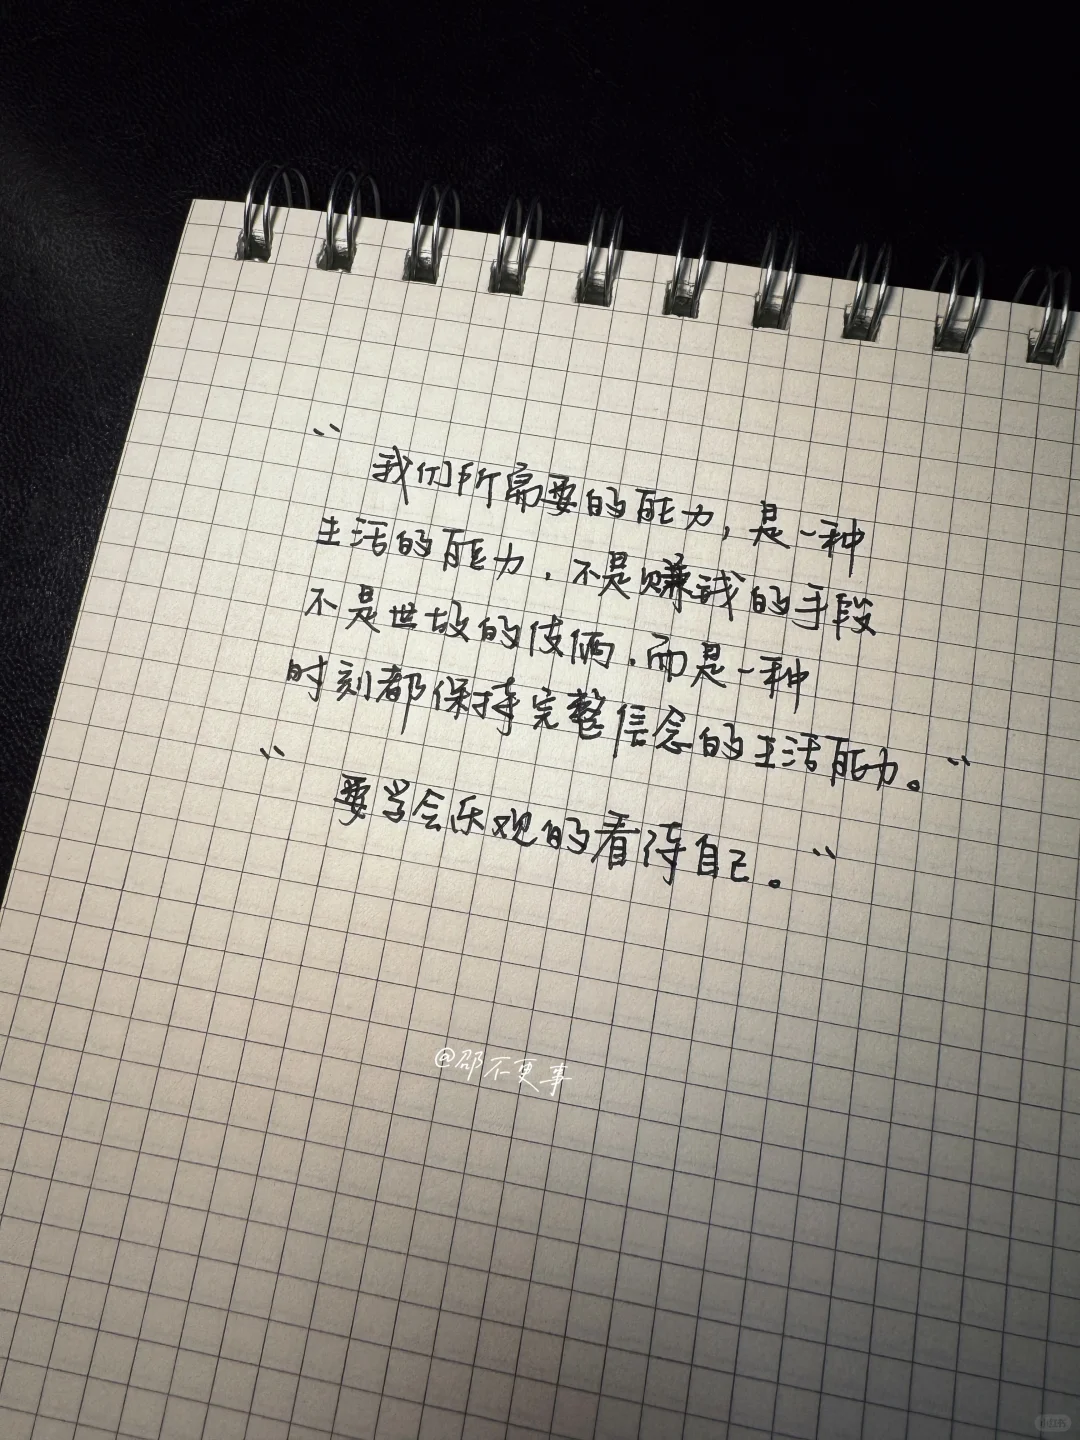 “我们所需要的能力，是一种
生活的能力，不是赚钱的手段
不是世故的伎俩，而是一种
时刻都保持完整信念的生活能力。”
“要学会乐观的看待自己。”
@邵不更事
小红书